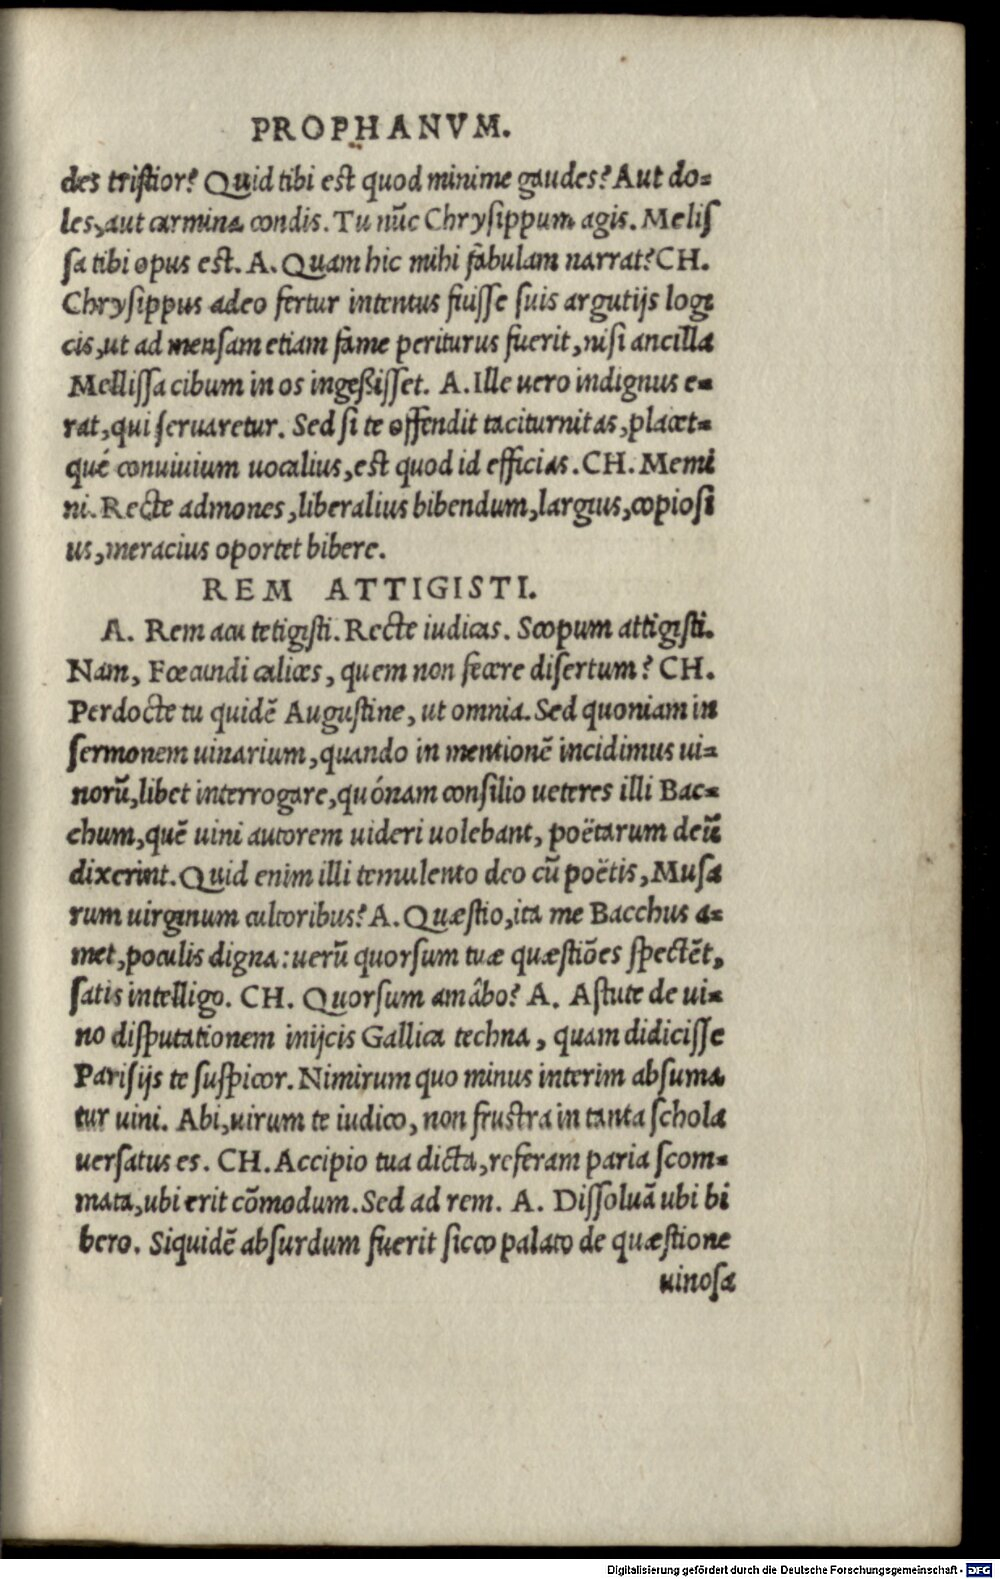 PROPHANVM.
des tristior? Quid tibi est quod minime gaudes? Aut do-
les, aut carmina condis. Tu nūc Chrysippum agis. Melis
sa tibi opus est. A. Quam hic mihi fabulam narrat? CH.
Chrysippus adeo fertur intentus fuisse suis argutijs logi
cis, ut ad mensam etiam fame periturus fuerit, nisi ancilla
Mellissa cibum in os ingeßisset. A. Ille uero indignus e-
rat, qui seruaretur. Sed si te offendit taciturnitas, placet-
qué conuiuium uocalius, est quod id efficias. CH. Memi
ni. Recte admones, liberalius bibendum, largius, copiosi
us, meracius oportet bibere.
REM ATTIGISTI.
A. Rem acu tetigisti. Recte iudicas. Scopum attigisti.
Nam, Fœcundi calices, quem non fecere disertum? CH.
Perdocte tu quidē Augustine, ut omnia. Sed quoniam in
sermonem uinarium, quando in mentionē incidimus ui-
norū, libet interrogare, quónam consilio ueteres illi Bac-
chum, quē uini autorem uideri uolebant, poëtarum deū
dixerint. Quid enim illi temulento deo cū poëtis, Musa
rum uirginum cultoribus? A. Quæstio, ita me Bacchus a-
met, poculis digna: uerū quorsum tuæ quæstiões spectēt,
satis intelligo. CH. Quorsum amâbo? A. Astute de ui-
no disputationem inijcis Gallica techna, quam didicisse
Parisijs te suspicor. Nimirum quo minus interim absuma
tur uini. Abi, uirum te iudico, non frustra in tanta schola
uersatus es. CH. Accipio tua dicta, referam paria scom-
mata, ubi erit cōmodum. Sed ad rem. A. Dissoluā ubi bi
bero. Siquidē absurdum fuerit sicco palato de quæstione
uinosa
Digitalisierung gefördert durch die Deutsche Forschungsgemeinschaft - DFG